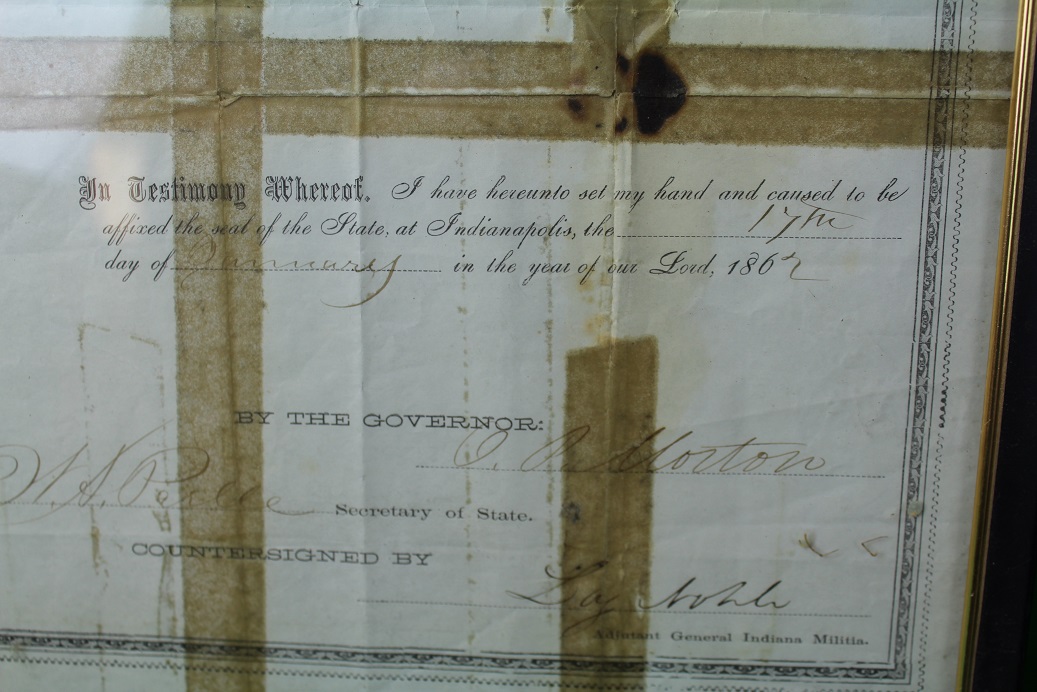 In Testimony Whereof, I have hereunto set my hand and caused to be
affixed the seal of the State, at Indianapolis, the 17th
day of January in the year of our Lord, 1862
BY THE GOVERNOR:
O. P. Morton
Secretary of State.
COUNTERSIGNED BY
Laz Noble
Adjutant General Indiana Militia.